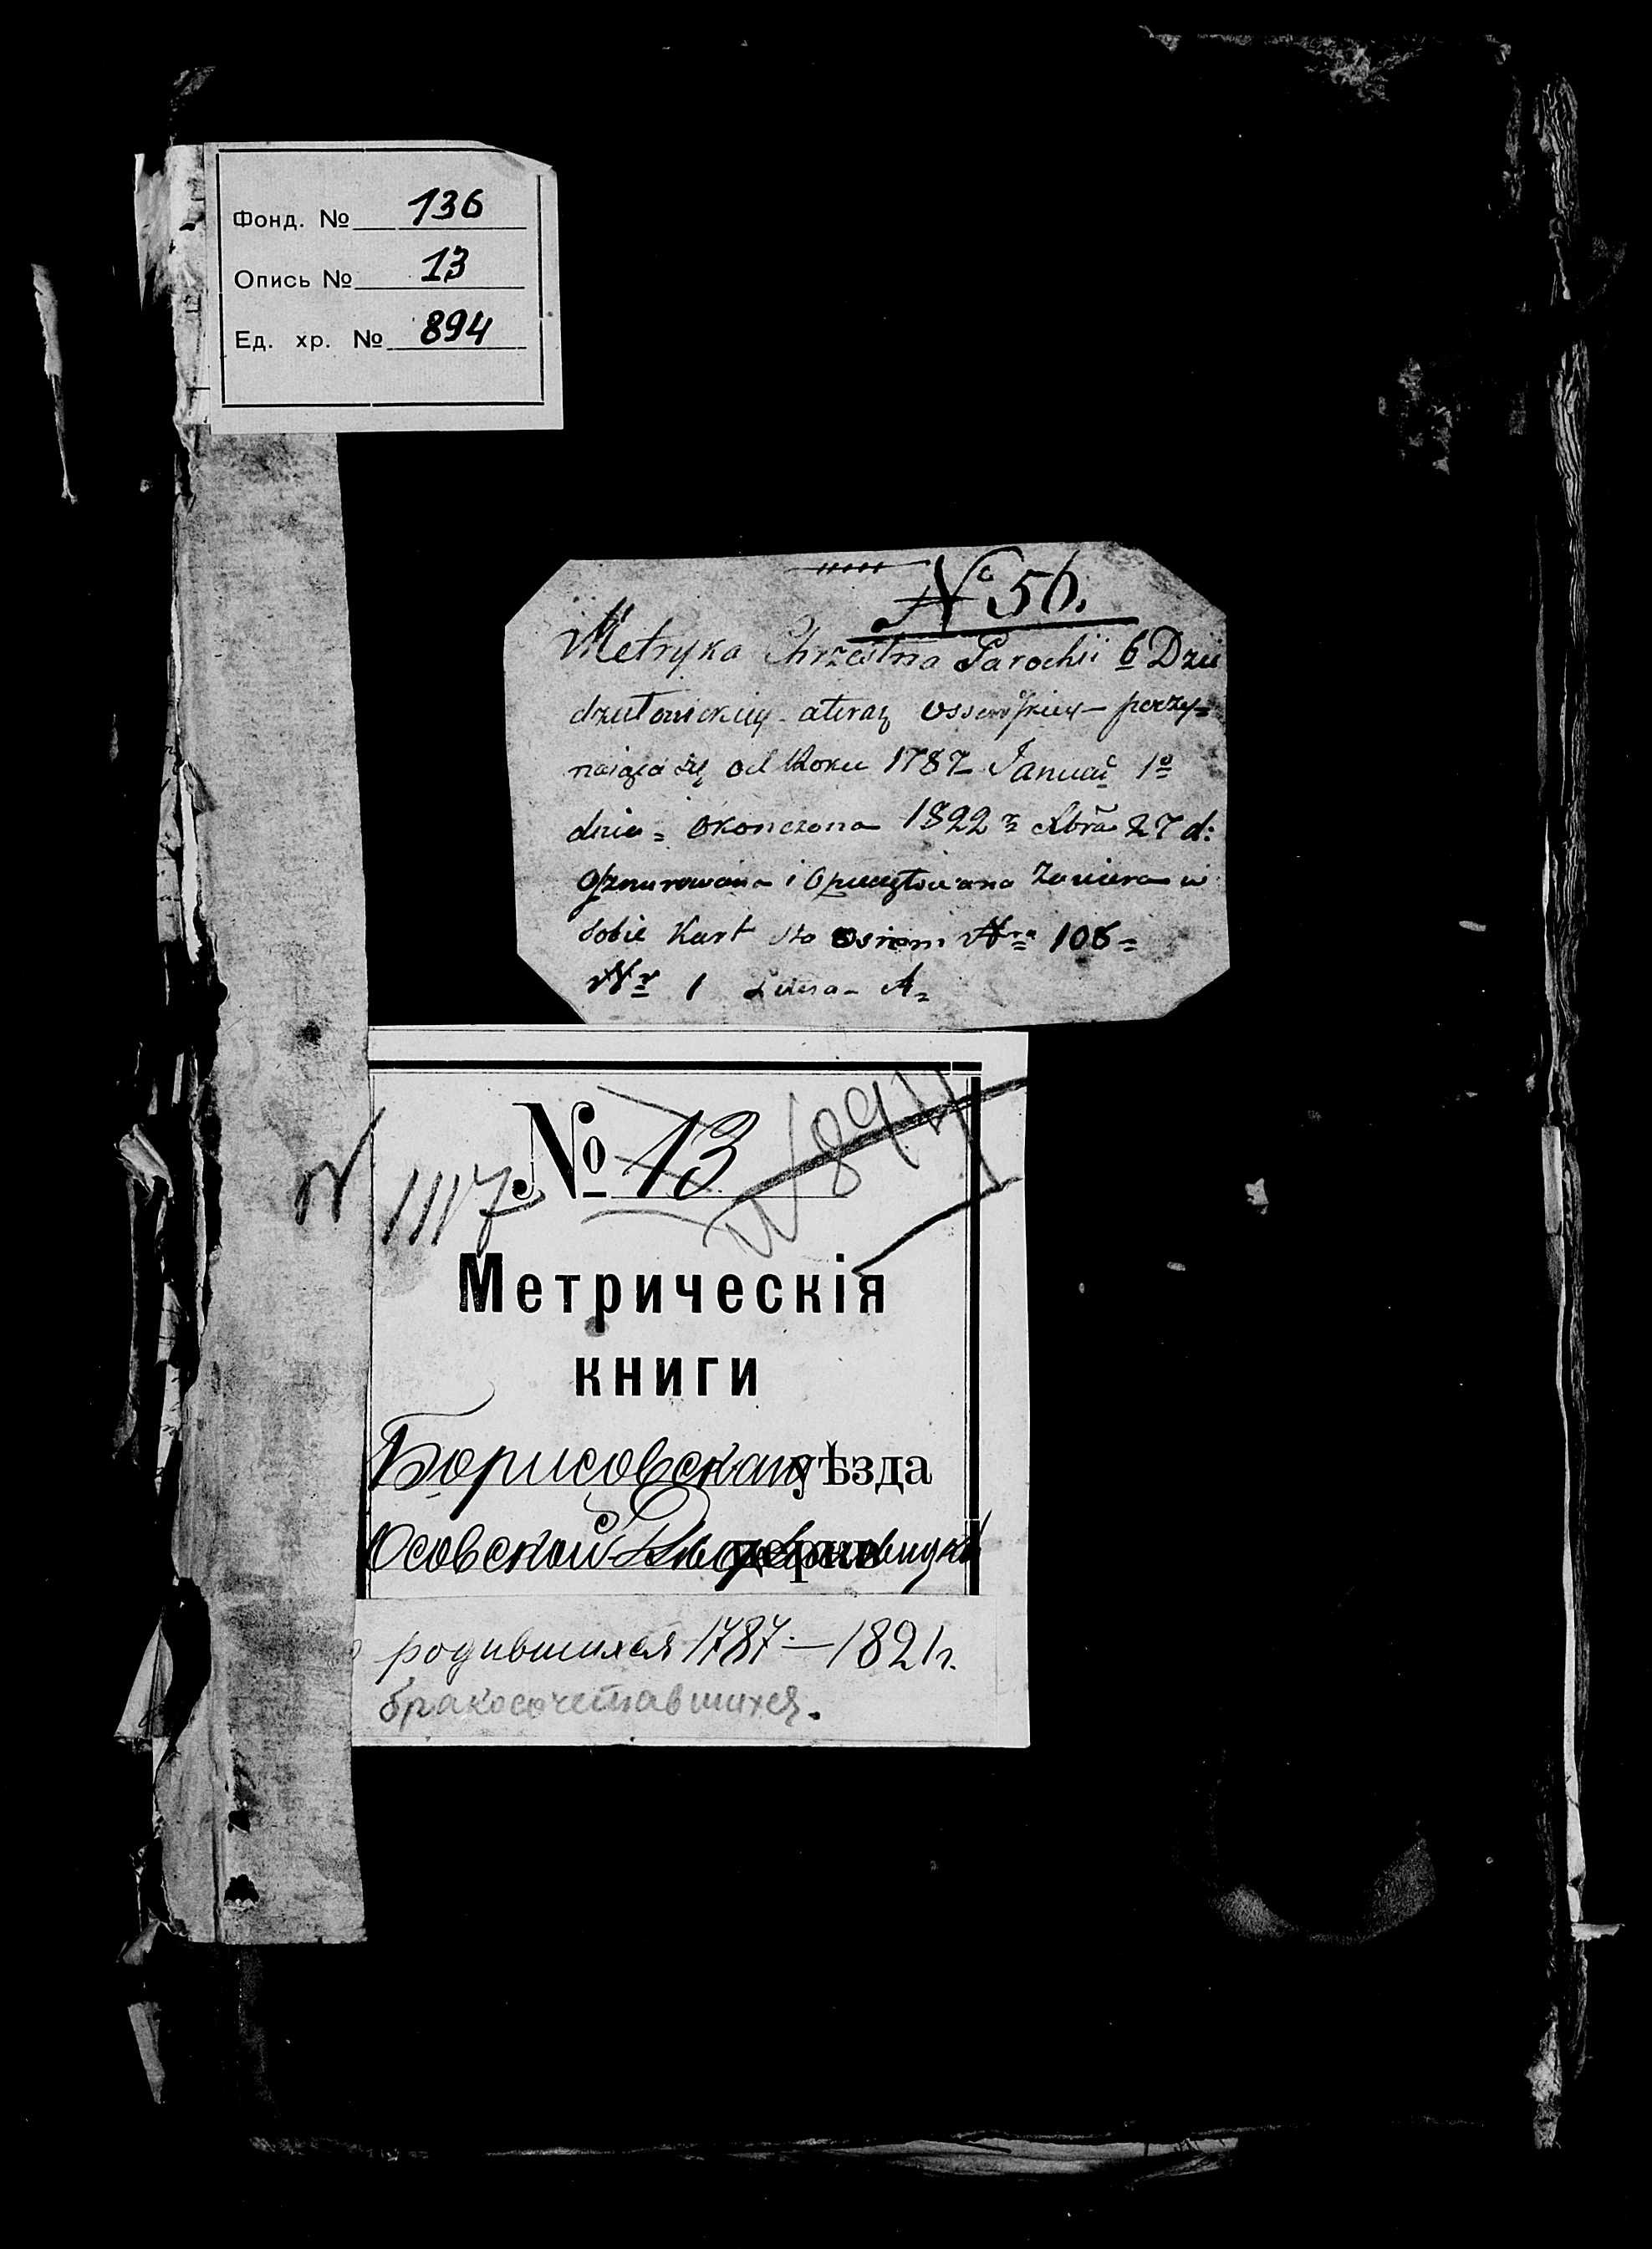 Фонд. № 136
Опись № 13
Ед. хр. № 894
№ 56.
Metryka Chrzestna Parochii b Dzie
dziłowickiey ateraz Ossowskiey poczy=
naiąca się od Roku 1787 Januar 1º
dnia = Okonczona 1822 Xbra 27 d:
Oznurowana i Opieczętowana Zawiera w
Sobie Kart sto Osiem Nro 108 =
Nr 1 Litera A=
№ 13 N 894
N 1117
Метрическія
книги
Борисовскаго уѣзда
Осовской церкви
родившихся 1787 — 1821 г.
бракосочетавшихся.